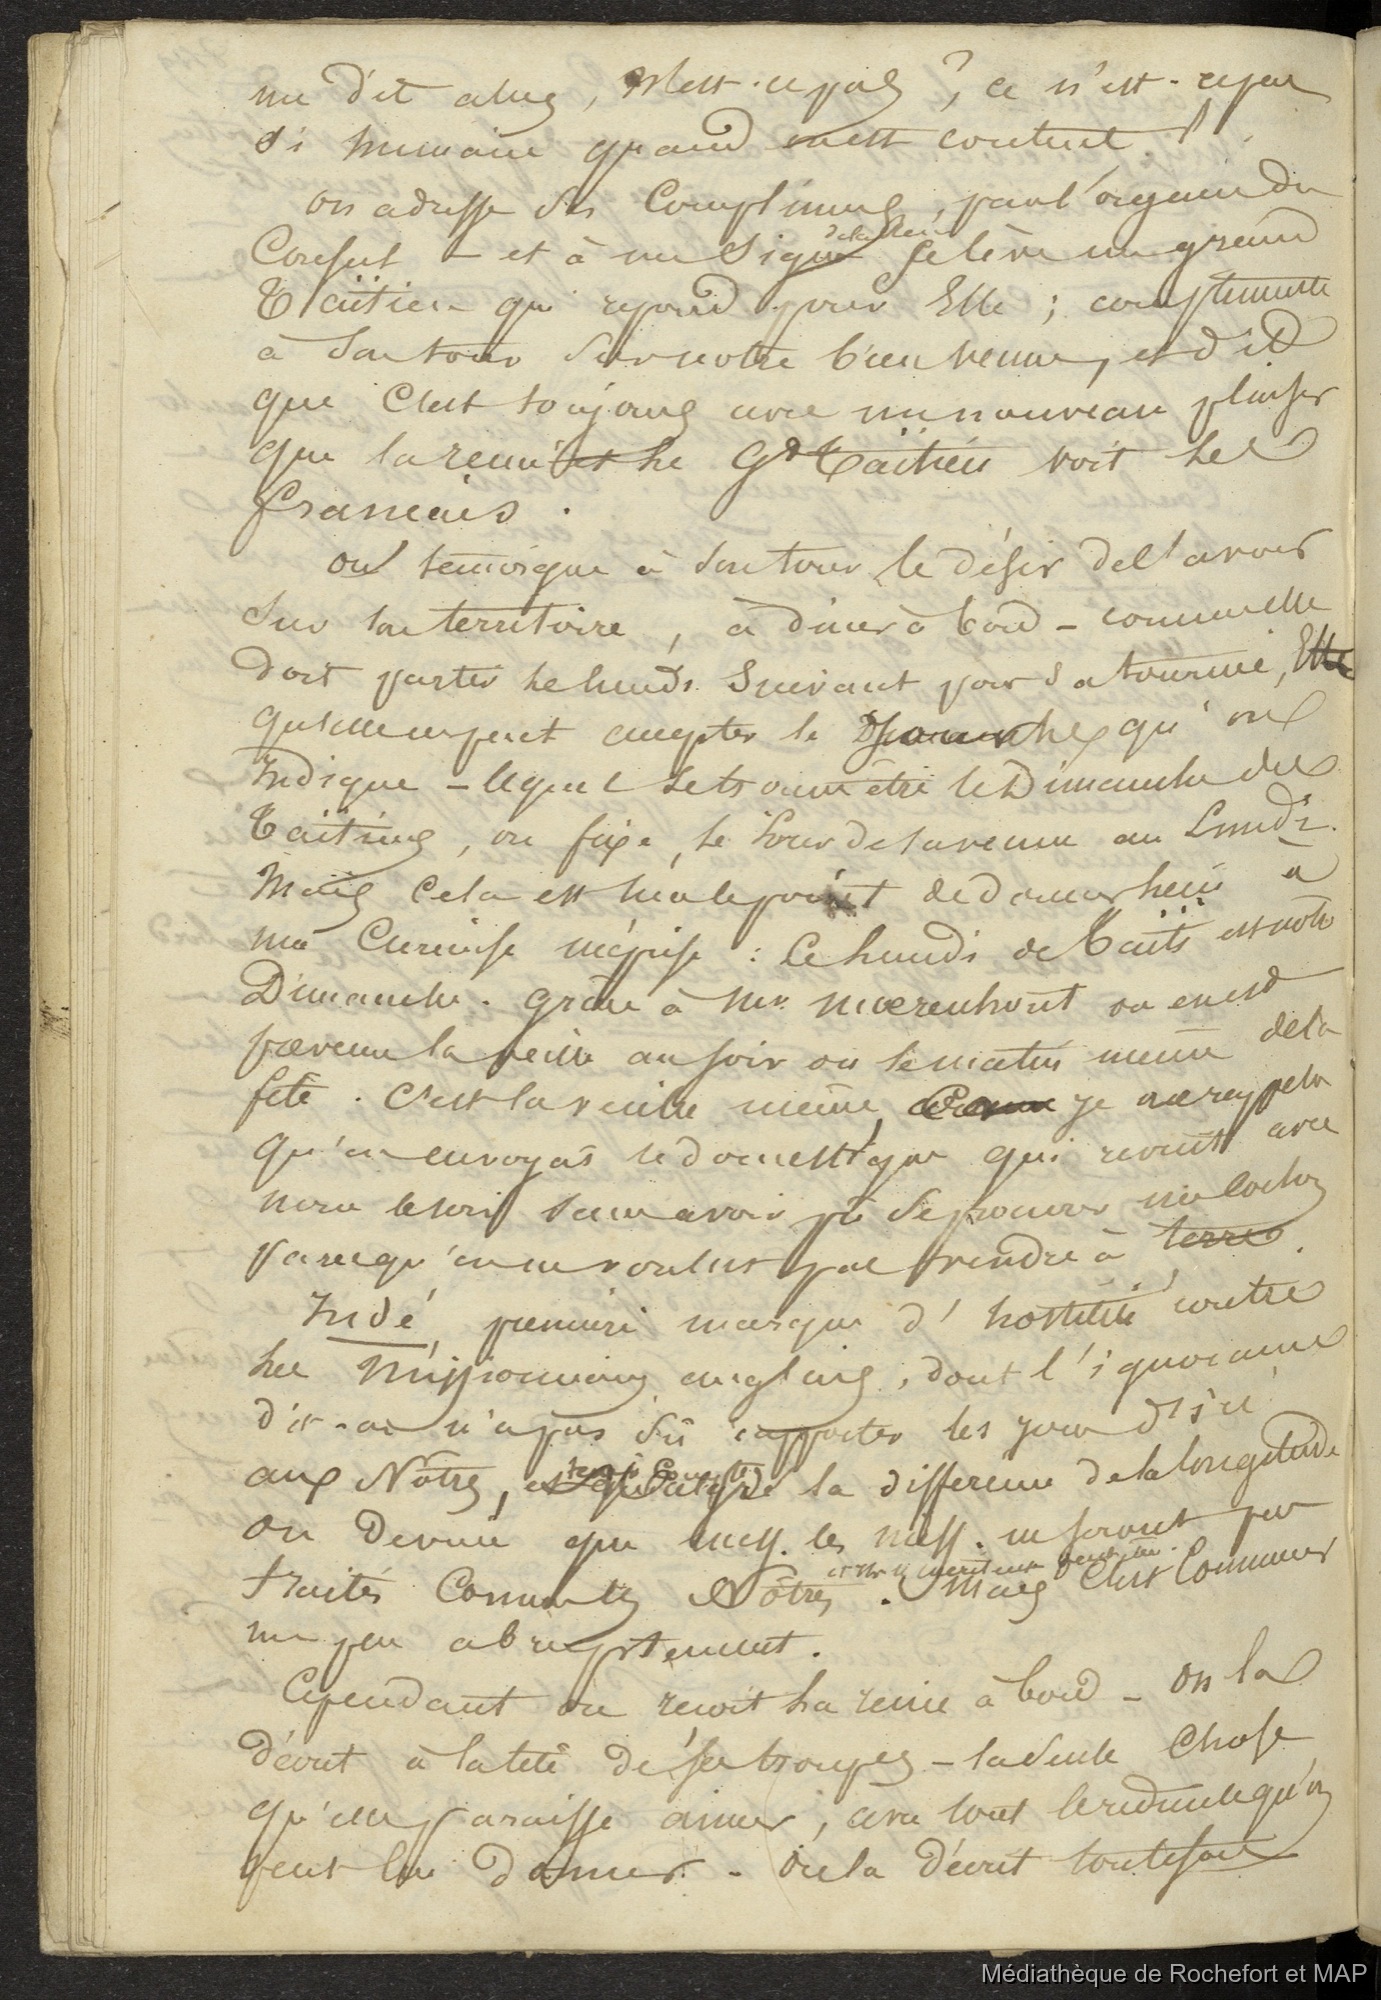 me dit alors, N'est-ce pas ?, ce n'est-ce pas
si humain quand on est content !
on adresse des Compliments, par l'organe du
Consul – et à un Signe de la Reine se lève un grand
Taïtien qui repond pour Elle ; complimente
à son tour sur notre bien venue, et dit
que c'est toujours avec un nouveau plaisir
que la reine et les Gds Taïtiens voit les
francais.
on temoigne à son tour le désir de l'avoir
Sur son territoire, à diner à bord – comme elle
doit partir le lundi Suivant pour sa tournée, Elle
qu'elle ne peut accepter le Dimanche qu'on
Indique – lequel se trouve être le Dimanche des
Taïtiens, on fixe, le Jour de la venue au Lundi.
Mais Cela est sur le point de donner lieu à
une Curieuse méprise : Le lundi de Taïti est notre
Dimanche. Grâce à Mr. Moerenhout on en est
prevenu la veille au soir ou le matin même de la
fête. C'est la veille même, je me rappelle
qu'on envoya le domestique qui revint avec
nous le soir sans avoir pû se procurer un cochon
parcequ'on ne voulut pas vendre à terre.
Indé, premiere marque d'hostilité contre
les Missionnaires anglais, dont l'ignorance
dit-on n'a pas sû rapporter les jours d'ici
aux Nôtres, la difference de la longitude
on devine que mess. les miss. ne seront pas
traités Comme les Nôtres. Mais C'est Commencer
un peu abruptement.
Cependant on recoit la reine à bord – on la
décrit à la tête de ses troupes – la seule Chose
qu'elle paraisse aimer, avec tout le ridicule qu'on
peut lui donner. – on la décrit toutefois
Médiathèque de Rochefort et MAP